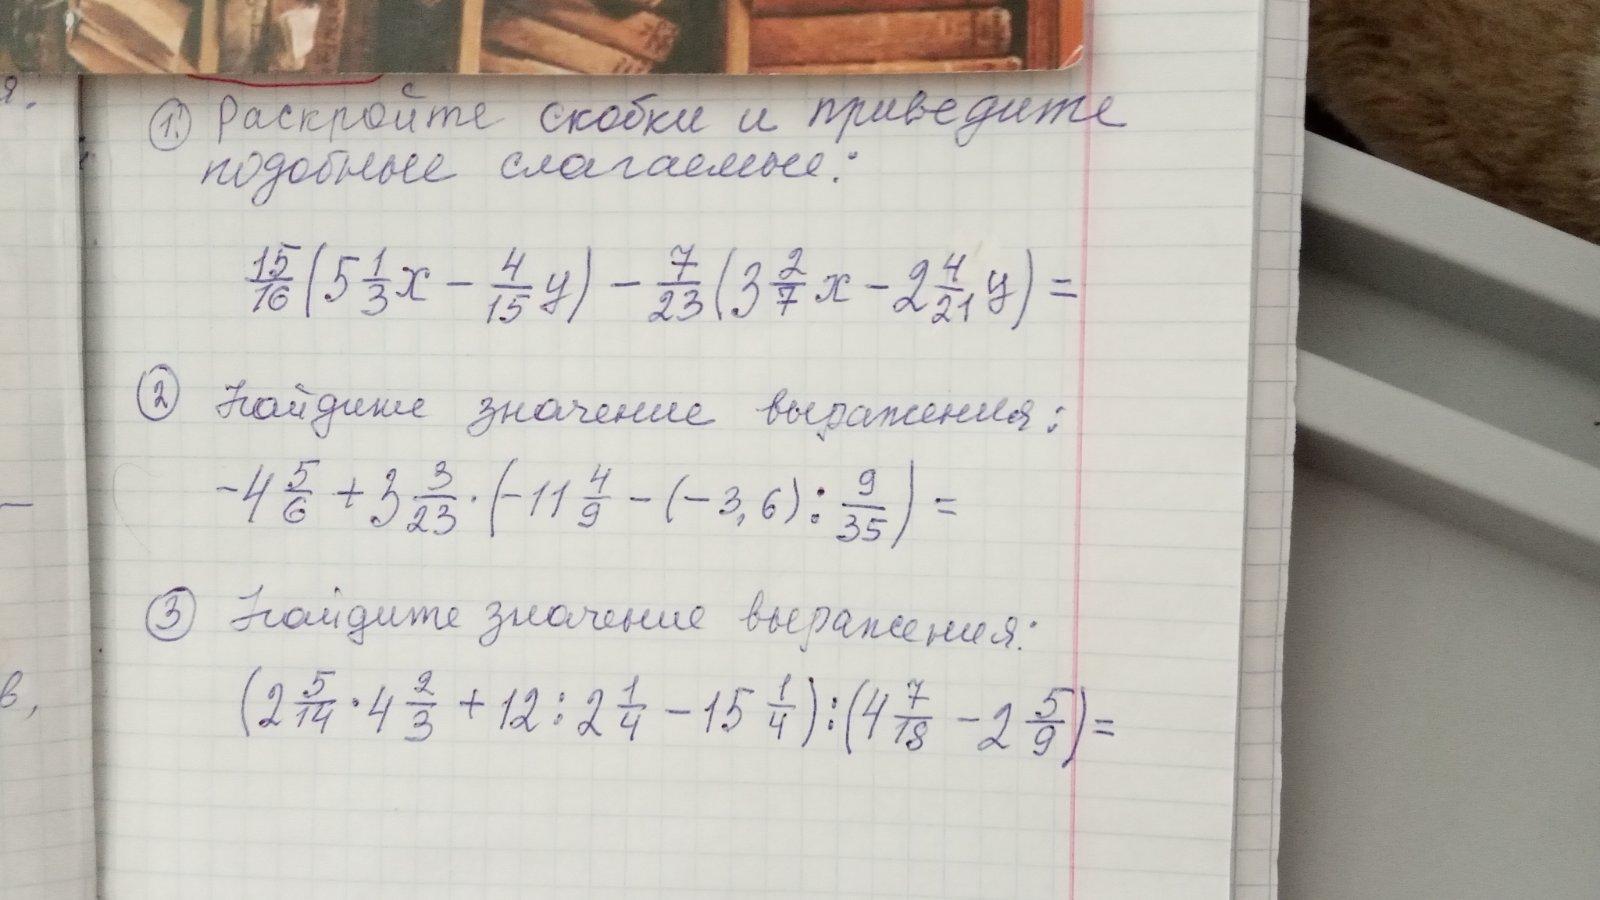 я.
① Раскройте скобки и приведите
подобные слагаемые:
15/16 (5 1/3 x - 4/15 y) - 7/23 (3 2/7 x - 2 4/21 y) =
② Найдите значение выражения:
-4 5/6 + 3 3/23 · (-11 4/9 - (-3,6) : 9/35) =
③ Найдите значение выражения:
в,
(2 5/14 · 4 2/3 + 12 : 2 1/4 - 15 1/4) : (4 7/18 - 2 5/9) =